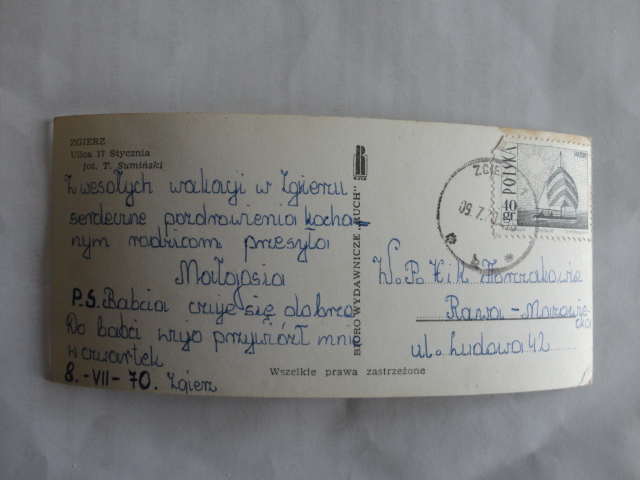 ZGIERZ
Ulica 17 Stycznia
fot. T. Sumiński
Z wesołych wakacji w Zgierzu
serdeczne pozdrowienia kocha-
nym rodzicom przesyła
Małgosia
P.S. Babcia czuje się dobrze
Do babci wujo przywiózł mnie
w czwartek
8.-VII-70. Zgierz
BIURO WYDAWNICZE „RUCH"
RUCH
Wszelkie prawa zastrzeżone
ZGIERZ 1
09.7.70
POLSKA
40
GR
W.P. H. i K.
Rawa-Mazowie-
cka
ul. Ludowa 42